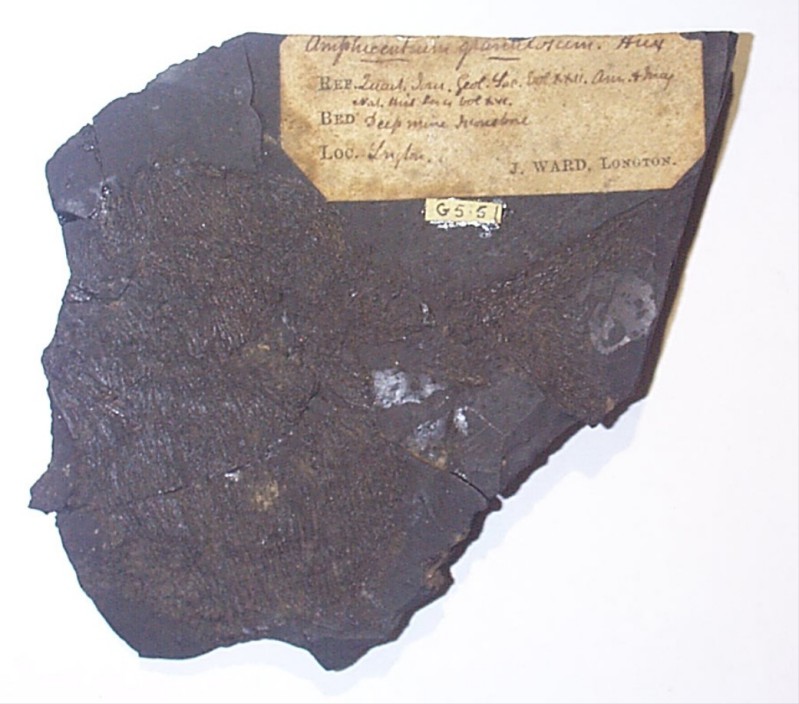 Amphicentrum granulosum. Hux
REF. Quart. Jour. Geol. Soc. Vol XXII. Ann. & Mag
Nat. Hist Series Vol XVI.
BED Deep mine Ironstone
LOC. Longton.
J. WARD, LONGTON.
G5·51